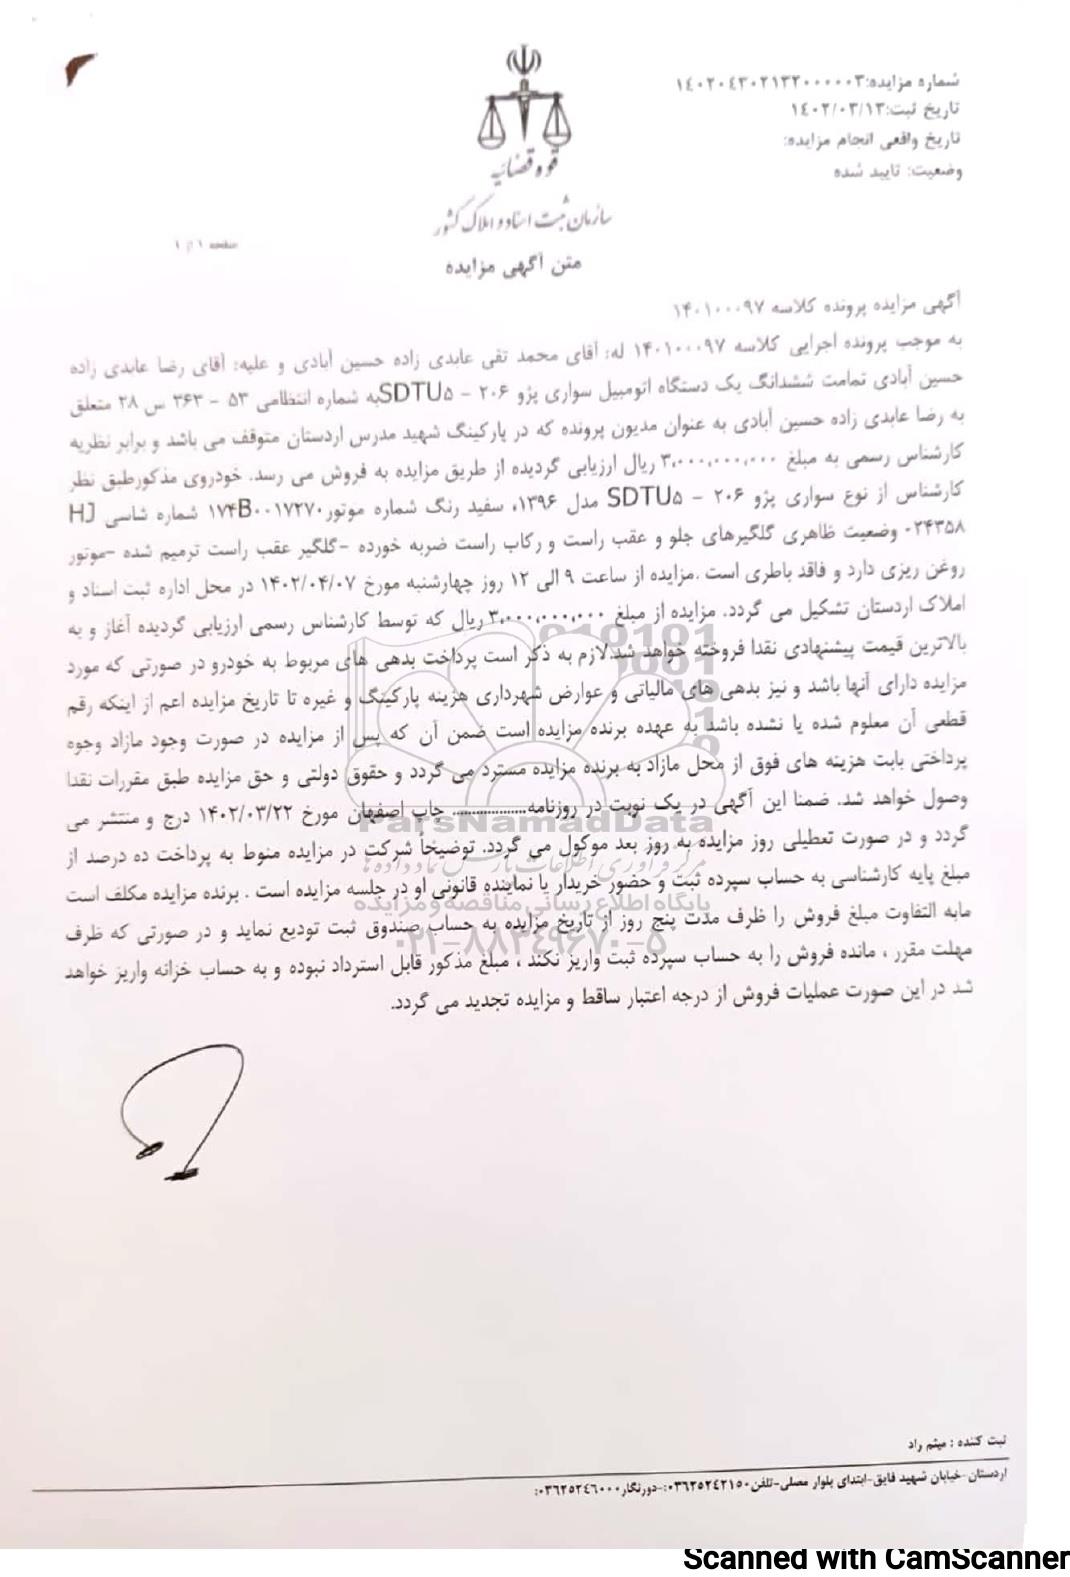 شماره مزایده:١٤٠٢٠٤٣٠٢١٣٢٠٠٠٠٠٣
تاریخ ثبت:١٤٠٢/٠٣/١٣
تاریخ واقعی انجام مزایده:
وضعیت: تایید شده
قوه قضائیه
سازمان ثبت اسناد و املاک کشور
صفحه ۱ از ۱
متن آگهی مزایده
آگهی مزایده پرونده کلاسه ۱۴۰۱۰۰۰۹۷
به موجب پرونده اجرایی کلاسه ۱۴۰۱۰۰۰۹۷ له: آقای محمد تقی عابدی زاده حسین آبادی و علیه: آقای رضا عابدی زاده
حسین آبادی تمامت ششدانگ یک دستگاه اتومبیل سواری پژو ۲۰۶ - SDTU۵به شماره انتظامی ۵۳ - ۳۶۳ س ۲۸ متعلق
به رضا عابدی زاده حسین آبادی به عنوان مدیون پرونده که در پارکینگ شهید مدرس اردستان متوقف می باشد و برابر نظریه
کارشناس رسمی به مبلغ ۳،۰۰۰،۰۰۰،۰۰۰ ریال ارزیابی گردیده از طریق مزایده به فروش می رسد. خودروی مذکورطبق نظر
کارشناس از نوع سواری پژو ۲۰۶ - SDTU۵ مدل ۱۳۹۶، سفید رنگ شماره موتور۱۷۴B۰۰۱۷۲۷۰ شماره شاسی HJ
۰۲۴۳۵۸ وضعیت ظاهری گلگیرهای جلو و عقب راست و رکاب راست ضربه خورده -گلگیر عقب راست ترمیم شده -موتور
روغن ریزی دارد و فاقد باطری است .مزایده از ساعت ۹ الی ۱۲ روز چهارشنبه مورخ ۱۴۰۲/۰۴/۰۷ در محل اداره ثبت اسناد و
املاک اردستان تشکیل می گردد. مزایده از مبلغ ۳،۰۰۰،۰۰۰،۰۰۰ریال که توسط کارشناس رسمی ارزیابی گردیده آغاز و به
بالاترین قیمت پیشنهادی نقدا فروخته خواهد شد.لازم به ذکر است پرداخت بدهی های مربوط به خودرو در صورتی که مورد
مزایده دارای آنها باشد و نیز بدهی های مالیاتی و عوارض شهرداری هزینه پارکینگ و غیره تا تاریخ مزایده اعم از اینکه رقم
قطعی آن معلوم شده یا نشده باشد به عهده برنده مزایده است ضمن آن که پس از مزایده در صورت وجود مازاد وجوه
پرداختی بابت هزینه های فوق از محل مازاد به برنده مزایده مسترد می گردد و حقوق دولتی و حق مزایده طبق مقررات نقدا
وصول خواهد شد. ضمنا این آگهی در یک نوبت در روزنامه.................. چاپ اصفهان مورخ ۱۴۰۲/۰۳/۲۲ درج و منتشر می
ParsNamadData
گردد و در صورت تعطیلی روز مزایده به روز بعد موکول می گردد. توضیحاً شرکت در مزایده منوط به پرداخت ده درصد از
مرکز فرآوری اطلاعات پارس نماد داده ها
مبلغ پایه کارشناسی به حساب سپرده ثبت و حضور خریدار یا نماینده قانونی او در جلسه مزایده است . برنده مزایده مکلف است
پایگاه اطلاع رسانی مناقصه و مزایده
مابه التفاوت مبلغ فروش را ظرف مدت پنج روز از تاریخ مزایده به حساب صندوق ثبت تودیع نماید و در صورتی که ظرف
۰۲۱-۸۸۳۴۹۶۷۰-۵
مهلت مقرر ، مانده فروش را به حساب سپرده ثبت واریز نکند ، مبلغ مذکور قابل استرداد نبوده و به حساب خزانه واریز خواهد
شد در این صورت عملیات فروش از درجه اعتبار ساقط و مزایده تجدید می گردد.
ثبت کننده : میثم راد
اردستان-خیابان شهید فایق-ابتدای بلوار مصلی-تلفن٠٣٦٢٥٢٤٢١٥٠:-دورنگار٠٣٦٢٥٢٤٦٠٠٠:
Scanned with CamScanner